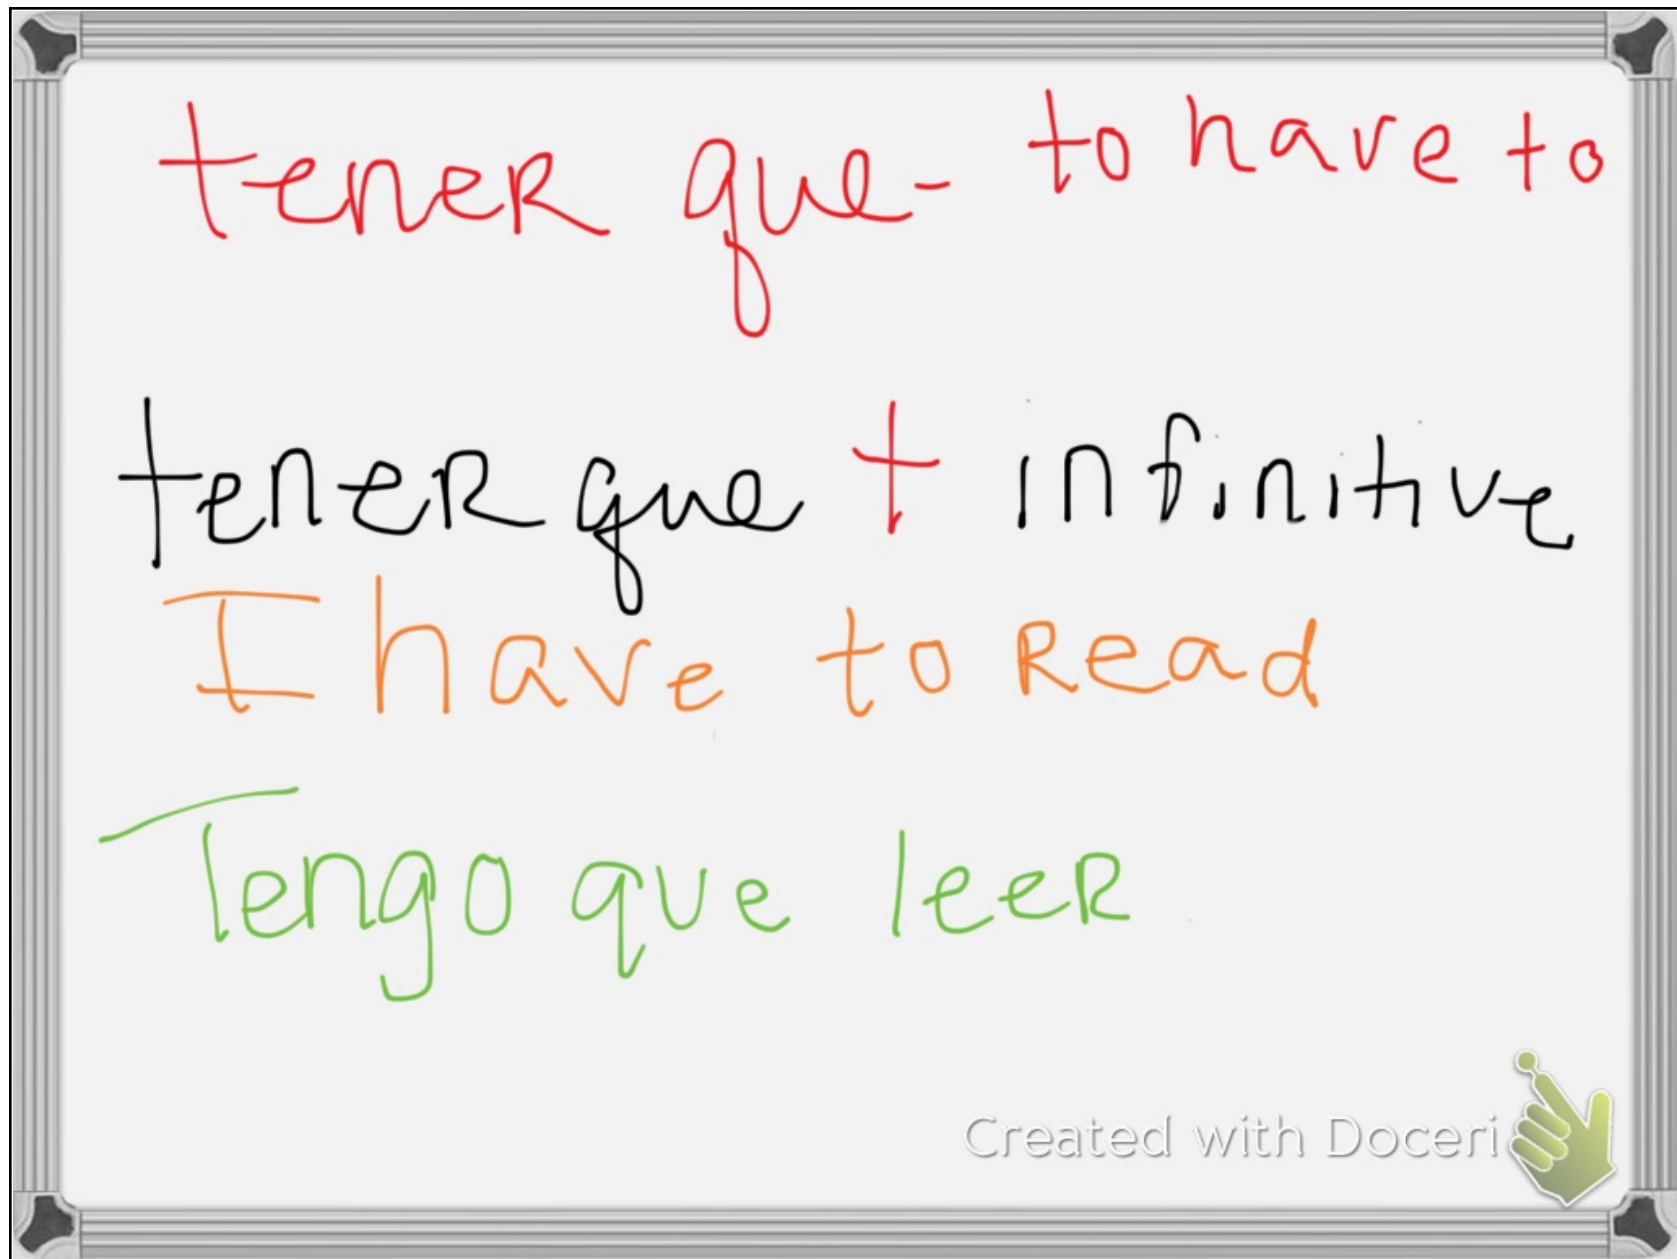 tener que - to have to
tener que + infinitive
I have to Read
Tengo que leer
Created with Doceri